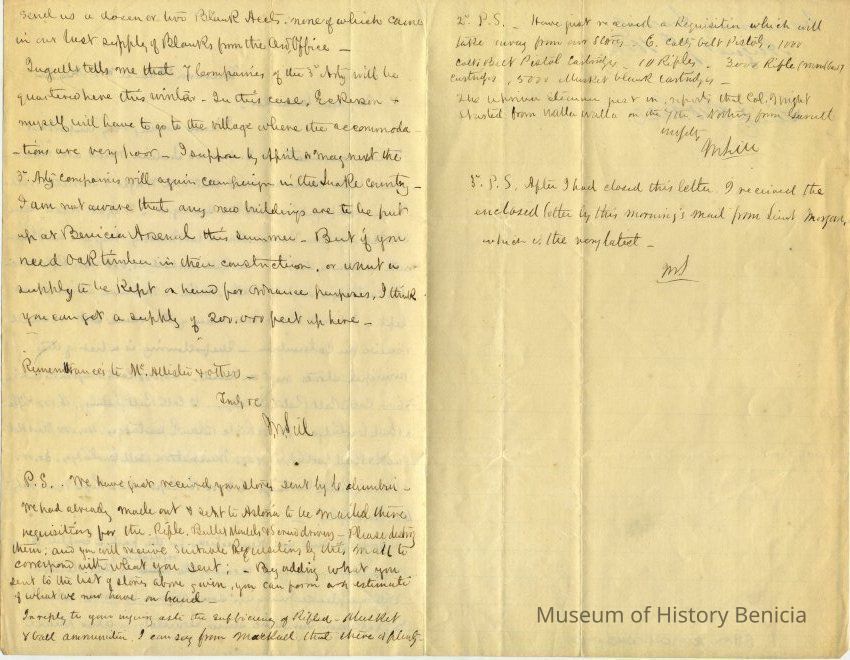 send us a dozen or two Blank Keels. none of which came
in our last supply of Blanks from the Ord Office –
Ingalls tells me that 7 Companies of the 3d Arty will be
quartered here this winter – In this case, Eckerson &
myself will have to go to the village where the accommoda-
-tions are very poor – I suppose by April or May next the
3d Arty companies will again campaign in the Snake country –
I am not aware that any new buildings are to be put
up at Benicia Arsenal this summer – But if you
need Oak timber in their construction, or want a
supply to be kept on hand for Ordnance purposes, I think
you can get a supply of 200.000 feet up here –
Remembrances to Mc Allister & others –
Truly &c
P.S. . We have just received your stores sent by the Columbia –
We had already made out & sent to Astoria to be mailed there
requisitions for the Rifle, Bullet Moulds, & Screwdrivers – Please destroy
them; and you will receive suitable Requisitions by this mail to
correspond with what you sent; – By adding what you
sent to the list of stores above given, you can form an estimate
of what we now have on hand –
In reply to your inquiry as to the sufficiency of Rifled – Musket
& ball ammunition, I can say from Mackall that there is plenty
2d P.S. – Have just received a Requisition which will
take away from our Stores – 6. colts belt Pistols, 1000
colts belt Pistol Cartridges – 10 Rifles. 3000 Rifle
cartridges, 5000 Musket blank cartridges –
The steamer just in, reports that Col. Wright
started from Walla Walla on the 7th – Nothing from Garnett
3d P.S. After I had closed this letter I received the
enclosed letter by this morning's mail from Lieut Morgan,
which is the very latest –
Museum of History Benicia